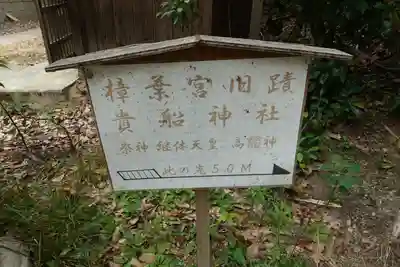 樟葉宮旧蹟
貴船神社
祭神 継体天皇 高龗神
此の先50M